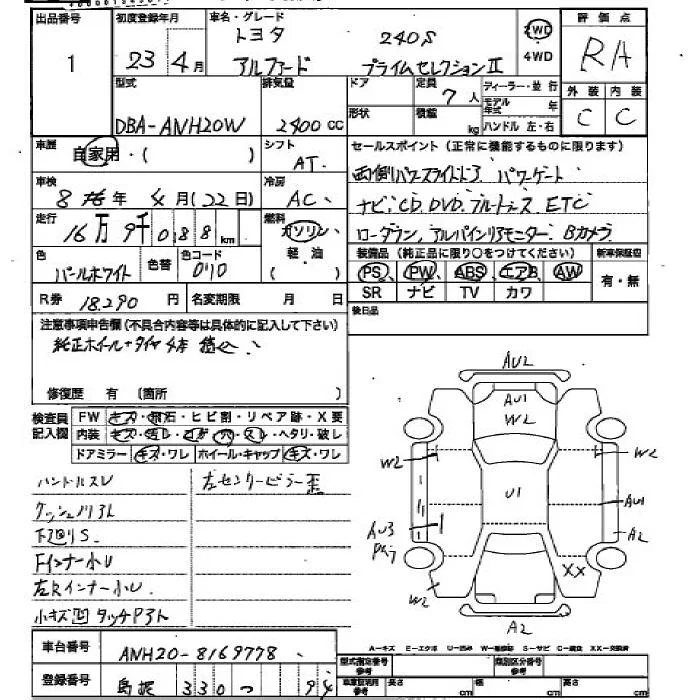 出品番号 初度登録年月 車名・グレード 評価点
1 23 4月 トヨタ 240S 2WD RA
アルファード プライムセレクションⅡ 4WD
型式 排気量 ドア 定員 ディーラー・並行 外装 内装
7人 モデル年式 年
DBA-ANH20W 2400cc 形状 積載 kg ハンドル 左・右 C C
車歴 自家用・( ) シフト AT. セールスポイント(正常に機能するものに限ります)
両側パワースライドドア パワーゲート
車検 8 年 4月(22日) 冷房 AC.
ナビ.CD.DVD.フルトレス.ETC
走行 16万9千088km 燃料 ガソリン・軽油
ローダウン. アルパインリアモニター. Bカメラ
色 パールホワイト 色替 色コード 070
装備品(純正品に限り〇をつけてください) 新車保証書
PS PW ABS エアB AW 有・無
SR ナビ TV カワ
R券 18.290円 名変期限 月 日
後日品
注意事項申告欄(不具合内容等は具体的に記入して下さい)
純正ホイール+タイヤ4本 積込、
修復歴 有(箇所 )
検査員記入欄 FW キズ・飛石・ヒビ割・リペア跡・X要
内装 キズ・汚レ・コゲ・穴・スレ・ヘタリ・破レ
ドアミラー キズ・ワレ ホイール・キャップ キズ・ワレ
ハンドルスレ 左センターピラー歪
下廻りS.
Fインナー小U
左Rインナー小U.
小キズ凹 タッチP3ト
AU2
AU1
W2
W2
W2
U1
AU1
A2
AU3
W2
XX
A2
A-キズ E-エクボ U-凹み W-補修跡 S-サビ C-腐食 XX-交換済
車台番号 ANH20-8169778
型式指定番号 参考 類別区分番号 参考
登録番号 島根 330 つ 94
車庫証明用 参考 長さ cm 幅 cm 高さ cm